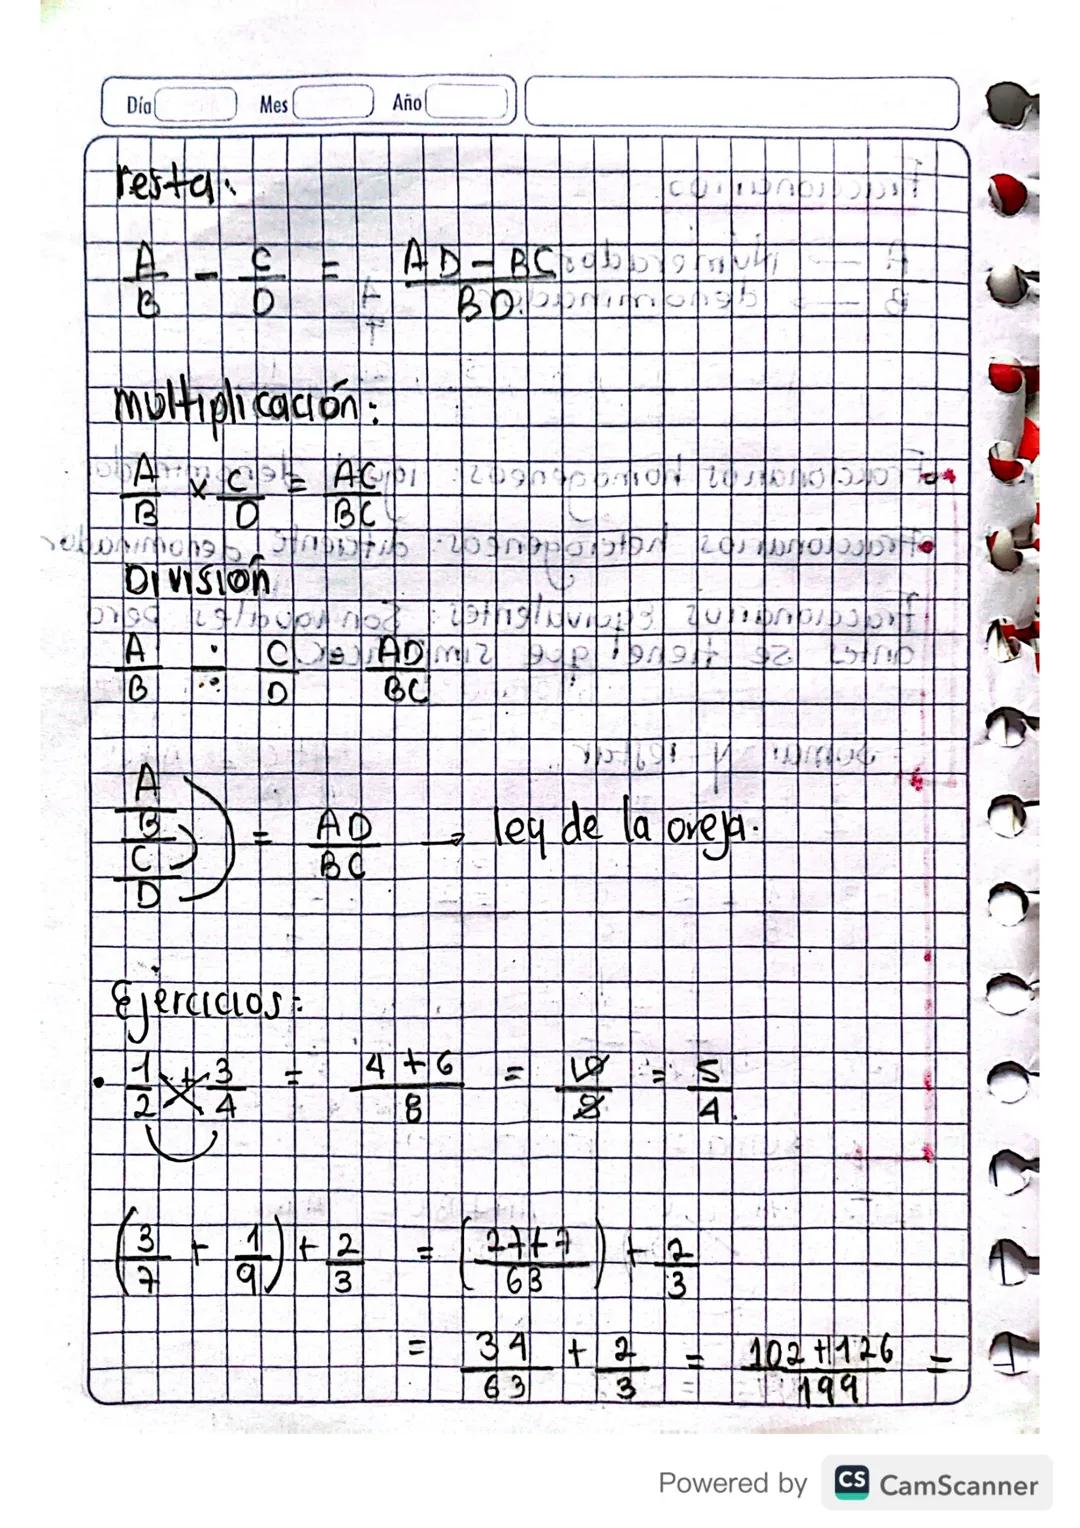 Día Mes Año
resta:
A/B - C/D = AD - BC/BD.
multiplicación:
A/B x C/D = AC/BC
División
A/B ÷ C/D = AD/BC
A/B/C/D = AD/BC → ley de la oreja.
Ejercicios:
• 1/2 + 3/4 = 4 + 6/8 = 10/8 = 5/4.
(3/7 + 1/9) + 2/3 = (27+7/63) + 2/3
= 34/63 + 2/3 = 102 + 126/199 =
Powered by CS CamScanner